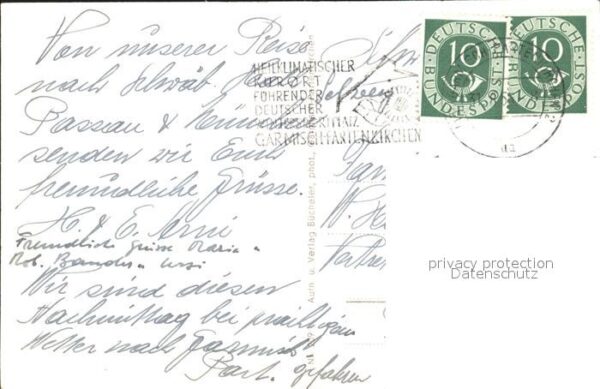 Von unserer Reise
nach Schwäb. Hall
Passau & München
senden wir Euch
freundliche Grüsse.
H. & E. Arni
Freundliche Grüsse Maria
Rob.
Wir sind diesen
Nachmittag bei prächtigen
Wetter nach Garmisch
Part. gefahren
HEILKLIMATISCHER
KURORT
FÜHRENDER
DEUTSCHER
WINTERSPORTPLATZ
GARMISCH-PARTENKIRCHEN
10
DEUTSCHE
BUNDESPOST
10
DEUTSCHE
BUNDESPOST
Fam
W.
Aufn. u. Verlag Bücheler, phot.
privacy protection
Datenschutz